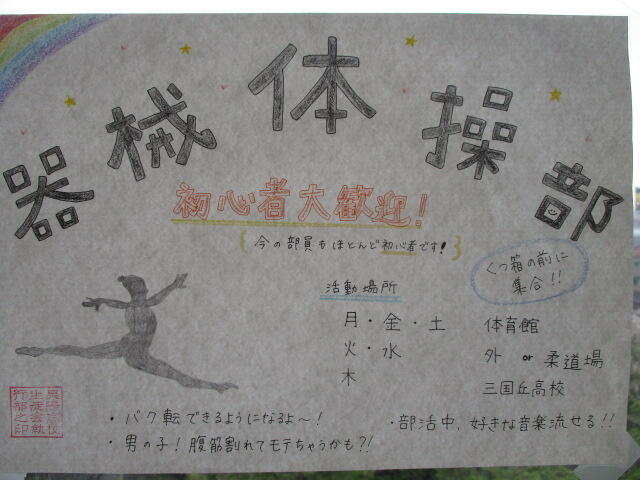 器械体操部
初心者大歓迎!
{今の部員もほとんど初心者です!}
くつ箱の前に
集合!!
活動場所
月・金・土 体育館
火・水 外 or 柔道場
木 三国丘高校
・バク転できるようになるよ〜!
・男の子!腹筋割れてモテちゃうかも?!
・部活中、好きな音楽流せる!!
生徒会執
行部之印